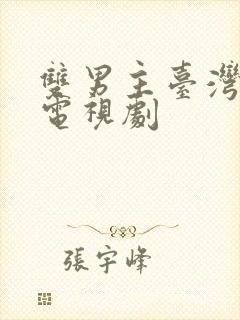 雙男主臺灣
電視劇
張宇峰